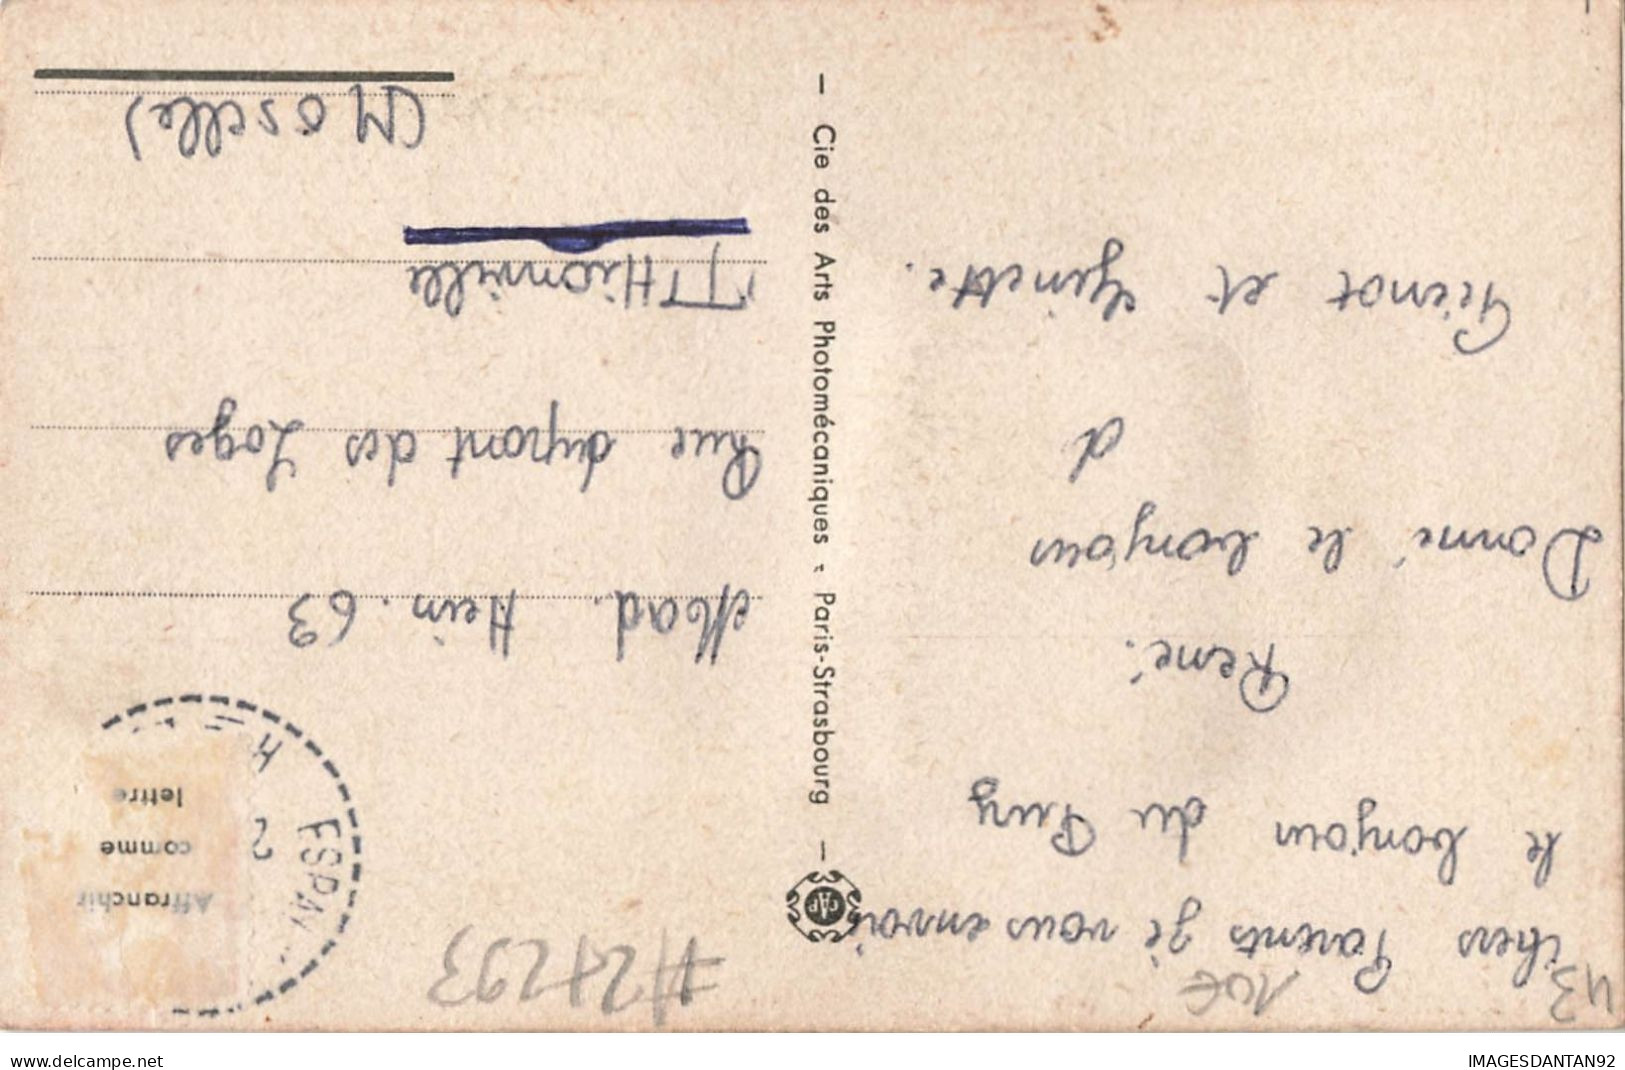 43
10€
#27293
chers Parents je vous envoi
le bonjour du Puy
René.
Donné le bonjour
à
Pierrot et Ginette.
CAP
— Cie des Arts Photomécaniques - Paris-Strasbourg —
Affranchir
comme
lettre
ESPAL
2
Mad. Hein. 63
Rue dupont des Loges
THionville
(Moselle)
www.delcampe.net
IMAGESDANTAN92